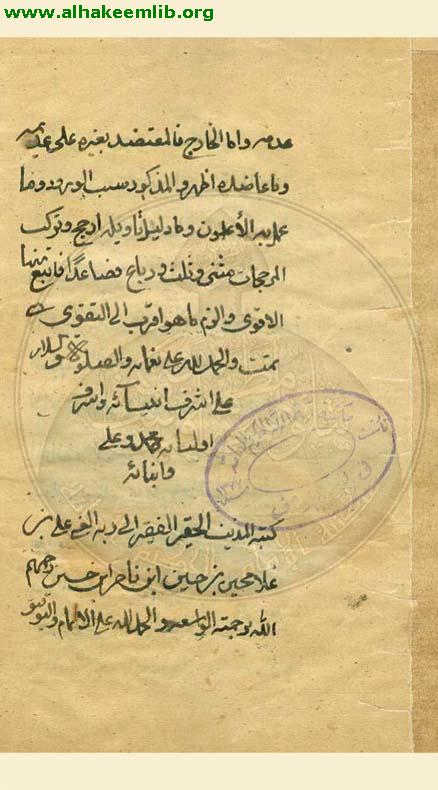 www.alhakeemlib.org
عدمه واما الخارج فالمعتضد بغيره على عديمه
وما عاضده اظهر والمذكور سبب الورود وما
عمل به الأعلون وما دليل تاويله ارجح وتركب
المرجحات مثنى وثلث ورباع فصاعدا فاتبع
الاقوى والزم ما هو اقرب الى التقوى
تمت والحمد لله على نعمائه والصلوة والسلام
على اشرف انبيائه واشرف
اوليائه محمد وعلى
وابنائه
كتبه المذنب الحقير الفقير الى ربه الغنى على بن
غلامحسين بن حسين ابن ناصر ابن حسن رحمهم
الله برحمته الواسعه والحمد لله على الاتمام والتوفيق